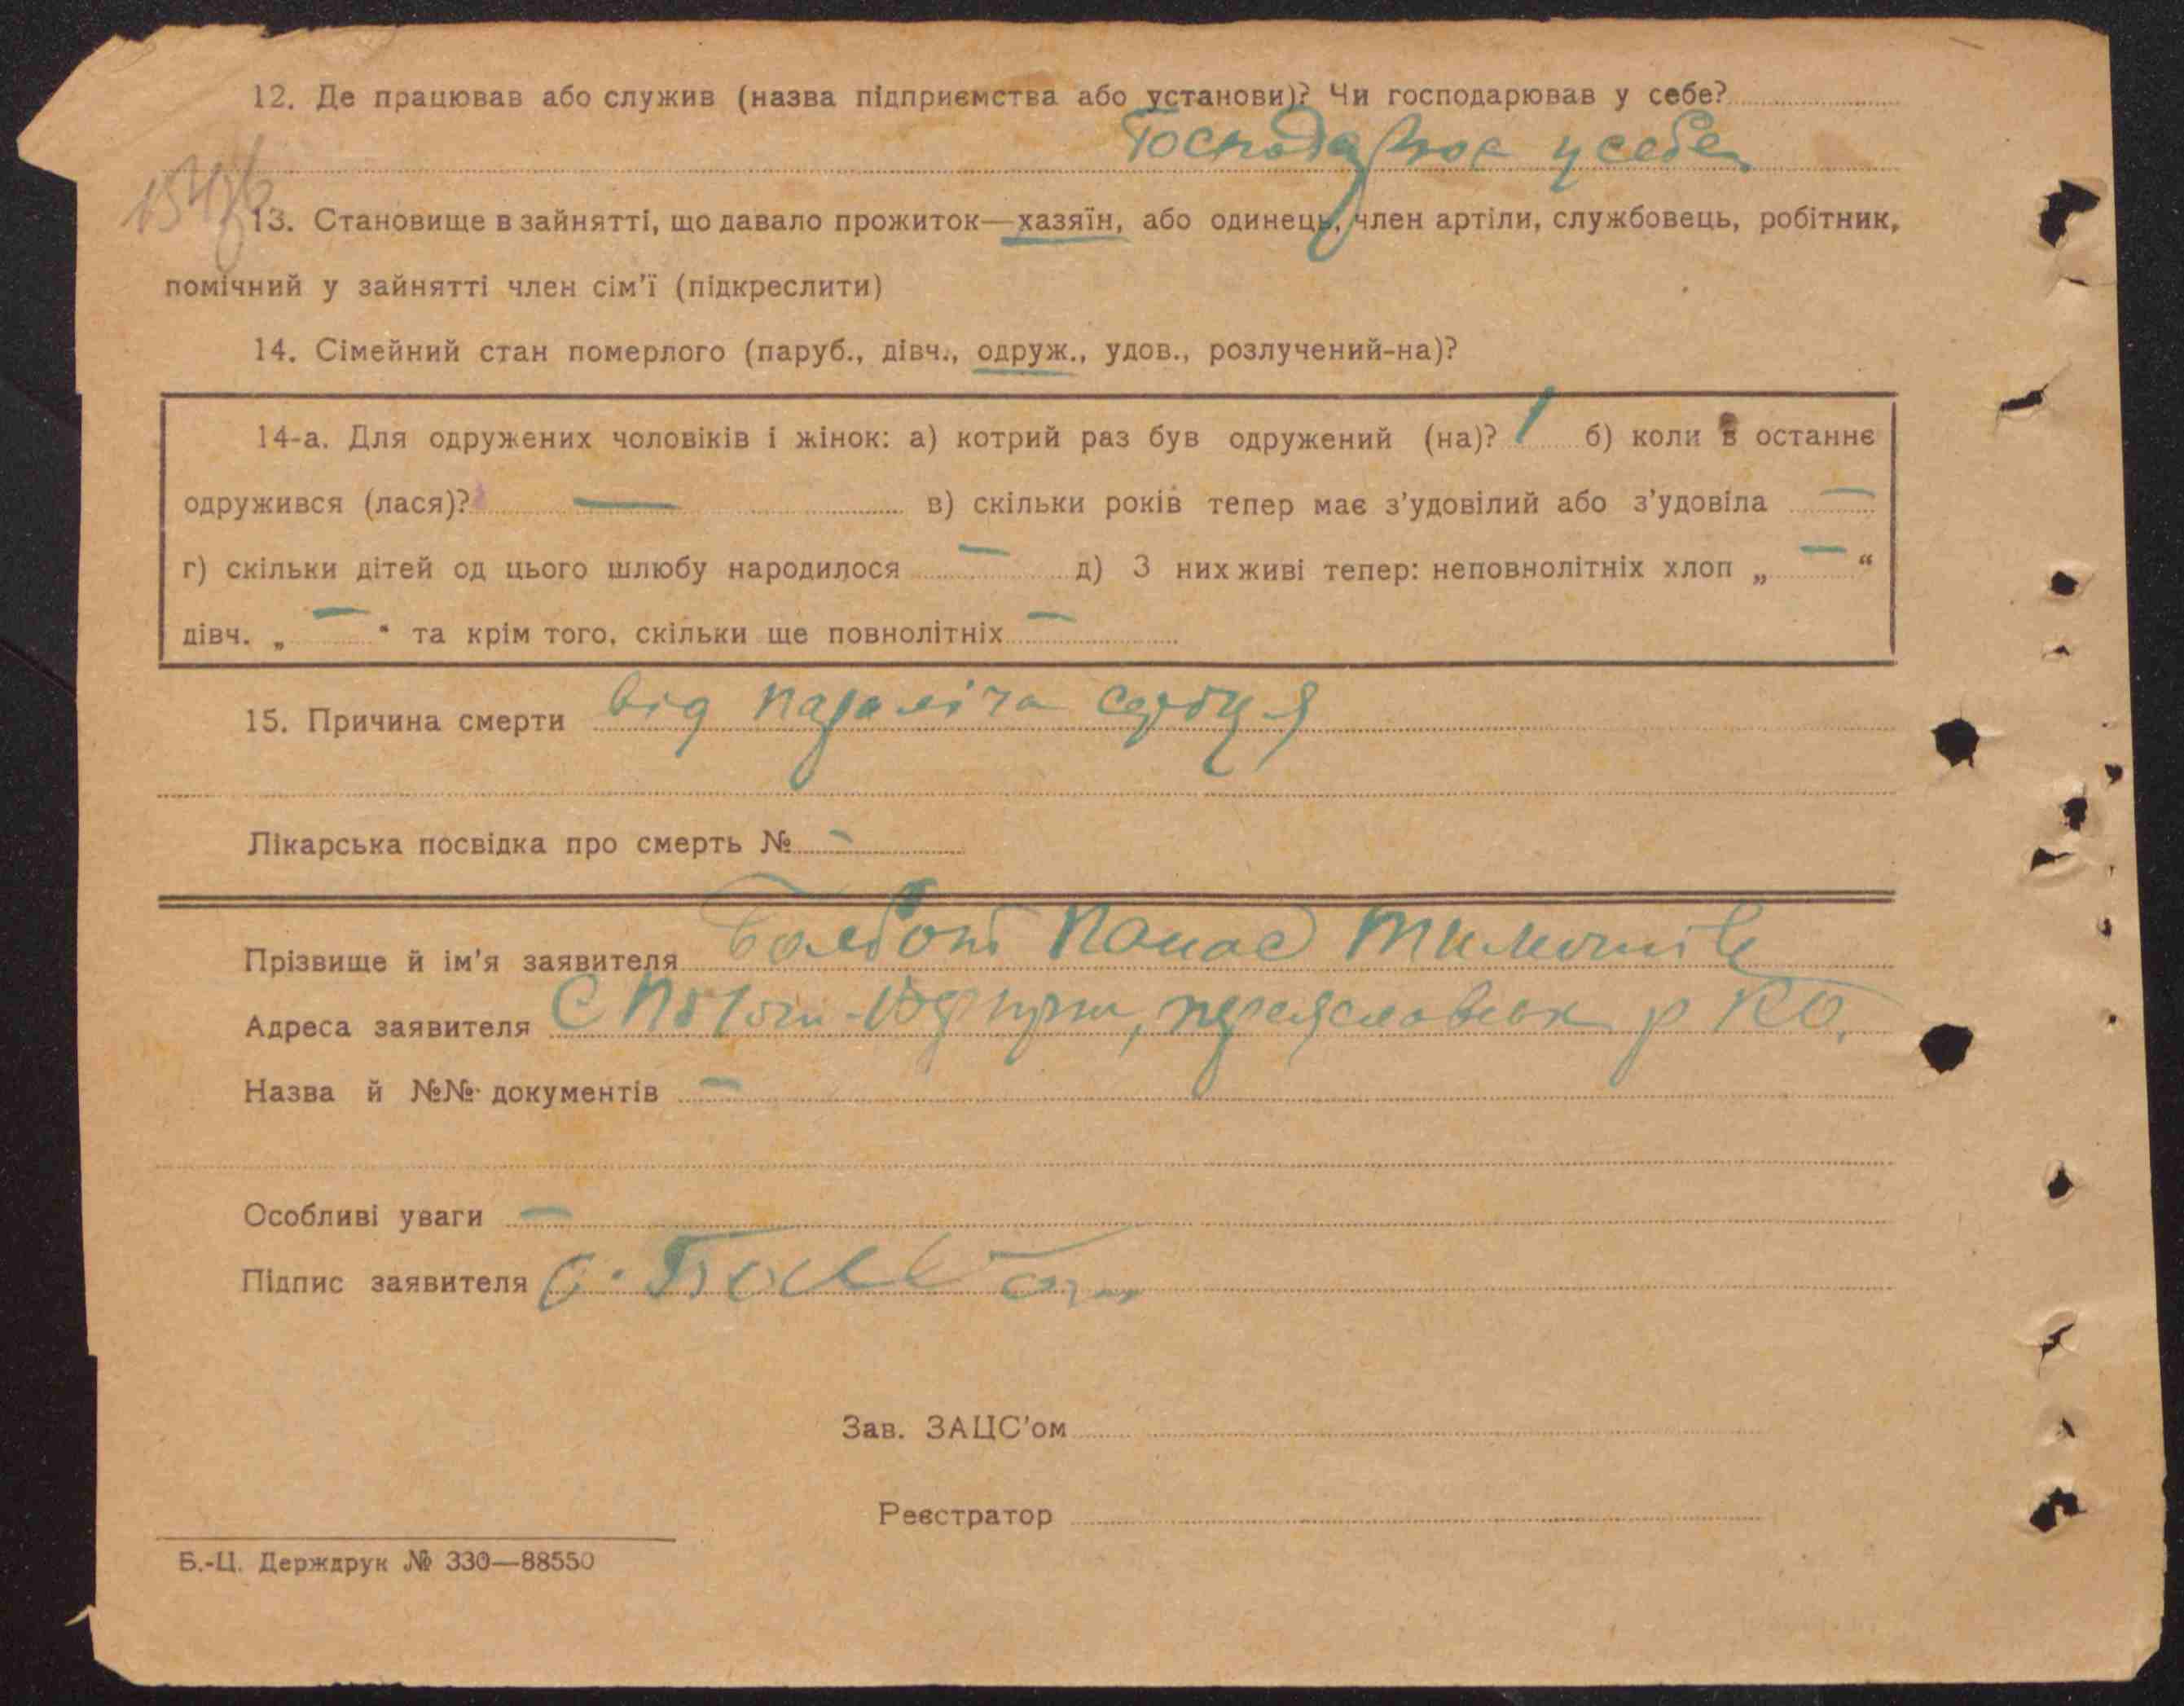 12. Де працював або служив (назва підприємства або установи)? Чи господарював у себе?
Господарює у себе
13. Становище в зайнятті, що давало прожиток—хазяїн, або одинець, член артіли, службовець, робітник,
помічний у зайнятті член сім'ї (підкреслити)
14. Сімейний стан померлого (паруб., дівч., одруж., удов., розлучений-на)?
14-а. Для одружених чоловіків і жінок: а) котрий раз був одружений (на)? 1 б) коли в останнє
одружився (лася)? — в) скільки років тепер має з'удовілий або з'удовіла —
г) скільки дітей од цього шлюбу народилося — д) З них живі тепер: неповнолітніх хлоп „ — “
дівч. „ — “ та крім того, скільки ще повнолітніх —
15. Причина смерти від параліча серця
Лікарська посвідка про смерть № —
Прізвище й ім'я заявителя Панас
Адреса заявителя С р КО.
Назва й №№ документів —
Особливі уваги —
Підпис заявителя
Зав. ЗАЦС'ом
Реєстратор
Б.-Ц. Держдрук № 330—88550